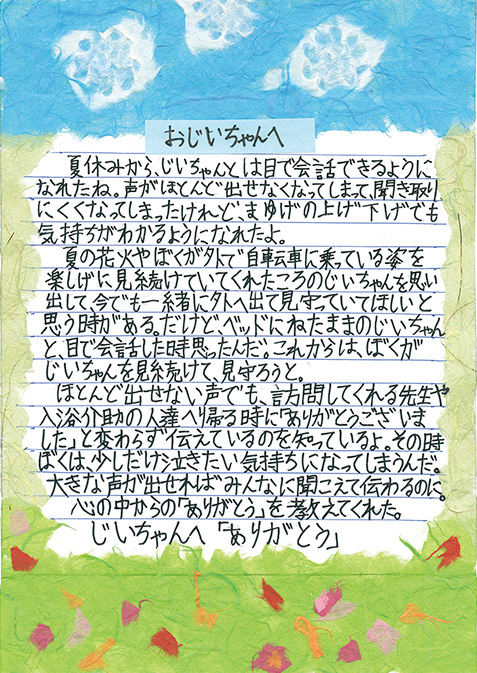 おじいちゃんへ
夏休みから、じいちゃんとは目で会話できるように
なれたね。声がほとんど出せなくなってしまって、聞き取り
にくくなってしまったけれど、まゆげの上げ下げでも
気持ちがわかるようになれたよ。
夏の花火やぼくが外で自転車に乗っている姿を
楽しげに見続けていてくれたころのじいちゃんを思い
出して、今でも一緒に外へ出て見守っていてほしいと
思う時がある。だけど、ベッドにねたままのじいちゃん
と、目で会話した時思ったんだ。これからは、ぼくが
じいちゃんを見続けて、見守ろうと。
ほとんど出せない声でも、訪問してくれる先生や
入浴介助の人達へ帰る時に「ありがとうございま
した」と変わらず伝えているのを知っているよ。その時
ぼくは、少しだけ泣きたい気持ちになってしまうんだ。
大きな声が出せればみんなに聞こえて伝わるのに。
心の中からの「ありがとう」を教えてくれた。
じいちゃんへ「ありがとう」